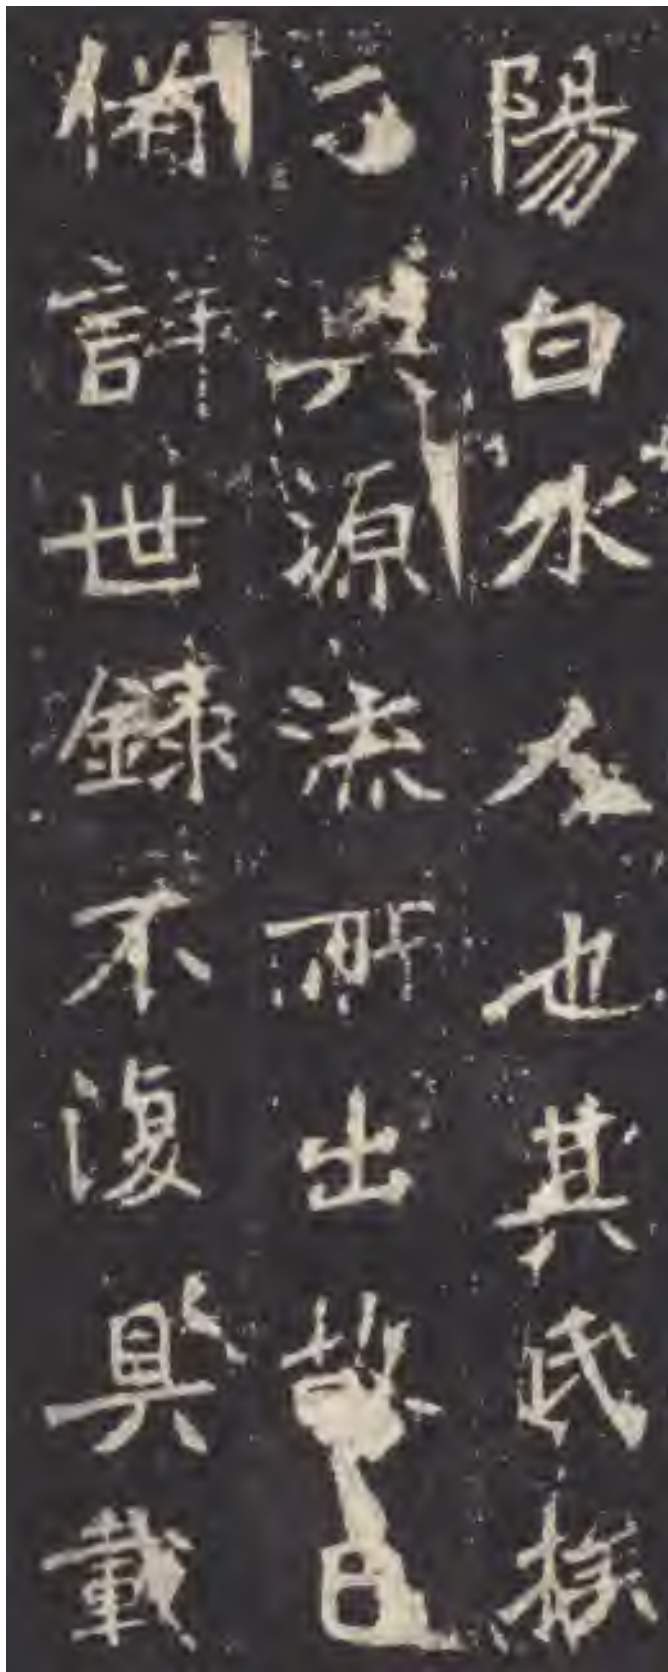 陽白水人也其氏族
分興源流所出故已
備詳世録不復具載